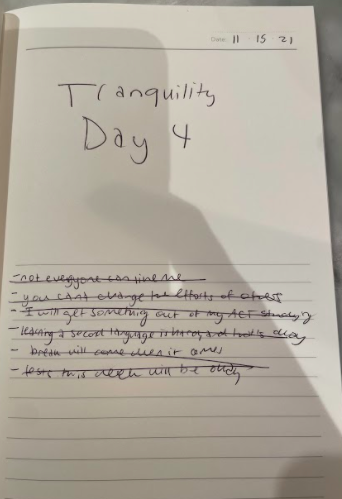 Date 11 15 21
Tranquility
Day 4
- not everyone can like me
- you cant change the efforts of others
- I will get something out of my ACT studying
- learning a second language is hard and that is okay
- break will come when it comes
- tests this week will be okay